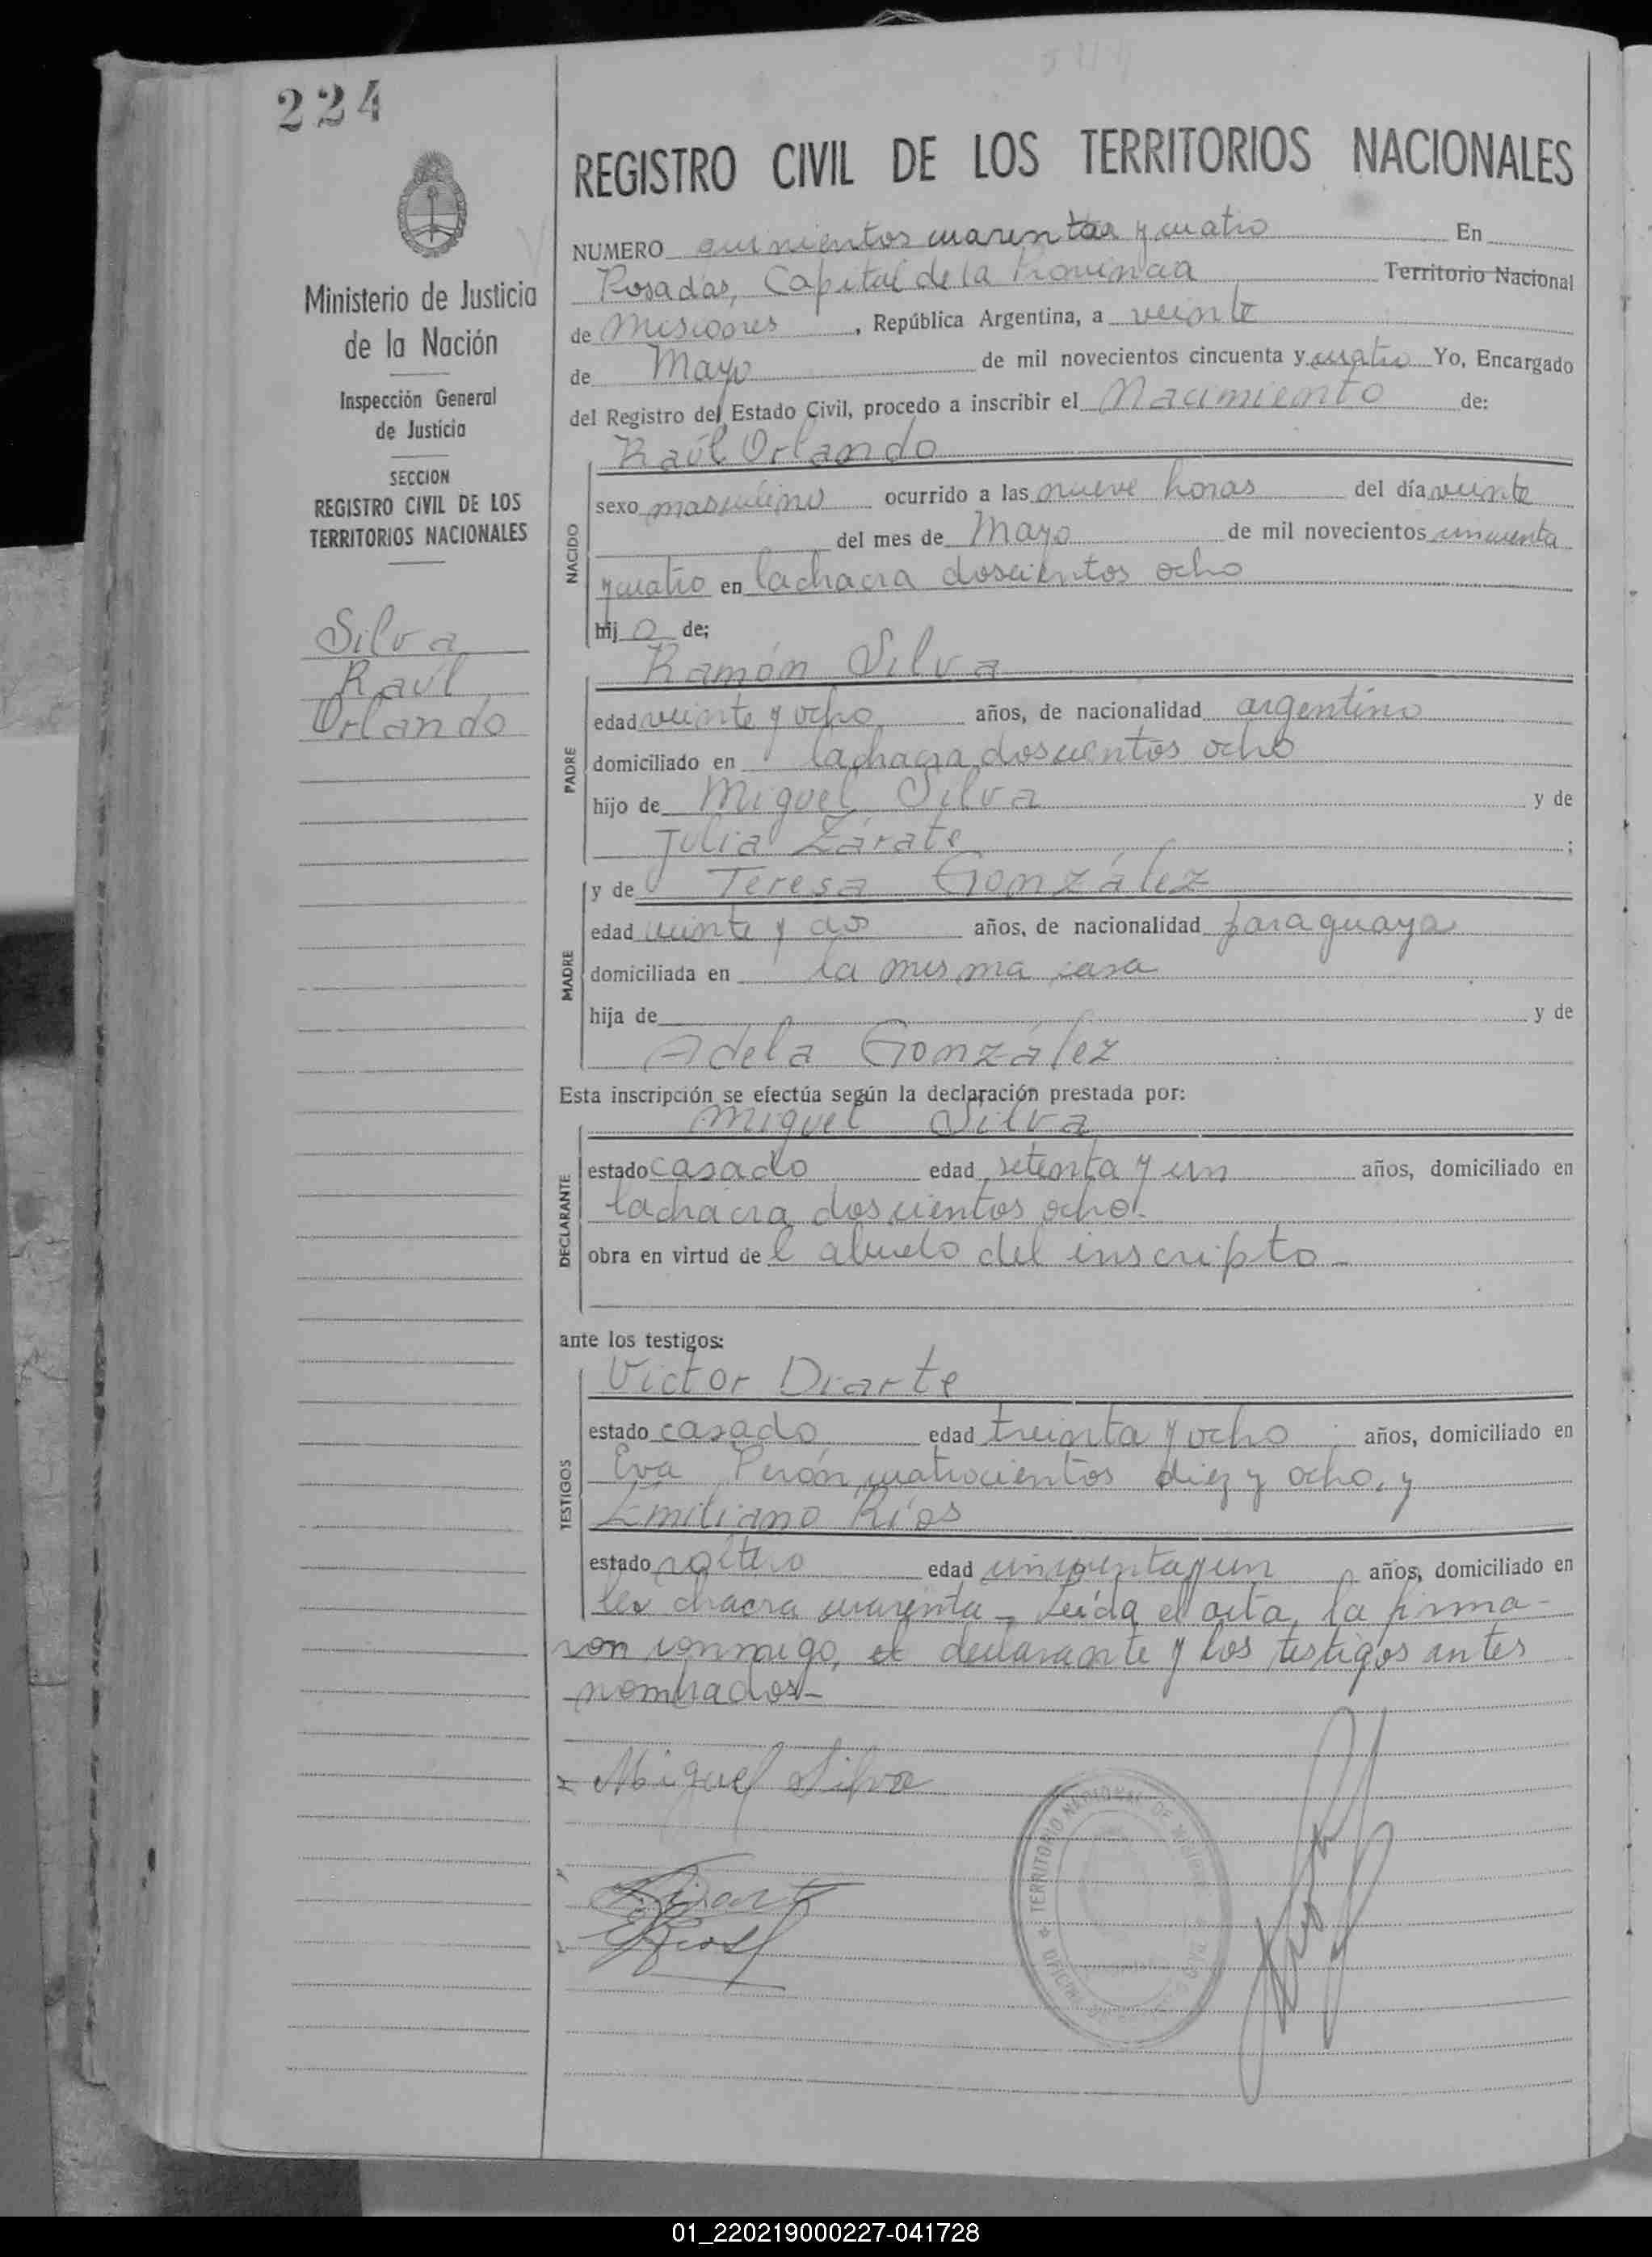 224
Ministerio de Justicia
de la Nación
Inspección General
de Justicia
SECCION
REGISTRO CIVIL DE LOS
TERRITORIOS NACIONALES
Silva
Raúl
Orlando
REGISTRO CIVIL DE LOS TERRITORIOS NACIONALES
NUMERO quinientos cuarenta y cuatro En
Posadas, Capital de la Provincia Territorio Nacional
de Misiones, República Argentina, a veinte
de Mayo de mil novecientos cincuenta y cuatro Yo, Encargado
del Registro del Estado Civil, procedo a inscribir el Nacimiento de:
Raúl Orlando
NACIDO
sexo masculino ocurrido a las nueve horas del día veinte
del mes de Mayo de mil novecientos cincuenta
y cuatro en la chacra doscientos ocho
hijo de;
Ramón Silva
PADRE
edad veinte y ocho años, de nacionalidad argentino
domiciliado en la chacra doscientos ocho
hijo de Miguel Silva y de
Julia Zárate ;
y de Teresa González
MADRE
edad veinte y dos años, de nacionalidad paraguaya
domiciliada en la misma casa
hija de y de
Adela González
Esta inscripción se efectúa según la declaración prestada por:
Miguel Silva
DECLARANTE
estado casado edad setenta y un años, domiciliado en
la chacra doscientos ocho.
obra en virtud de l abuelo del inscripto -
ante los testigos:
Victor Diarte
TESTIGOS
estado casado edad treinta y ocho años, domiciliado en
Eva Perón cuatrocientos diez y ocho, y
Emiliano Ríos
estado soltero edad cincuenta y un años, domiciliado en
la chacra cuarenta - Leída el acta, la firma-
ron conmigo, el declarante y los testigos antes
nombrados -
Miguel Silva
Diarte
ERios
TERRITORIO NACIONAL DE MISIONES
01_220219000227-041728